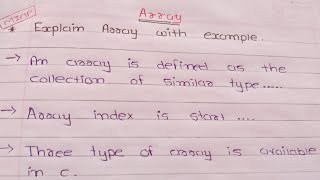 MSMP
Array
* Explain Array with example
→ An array is defined as the
collection of similar type.....
→ Array index is start ....
→ Three type of array is available
in c.